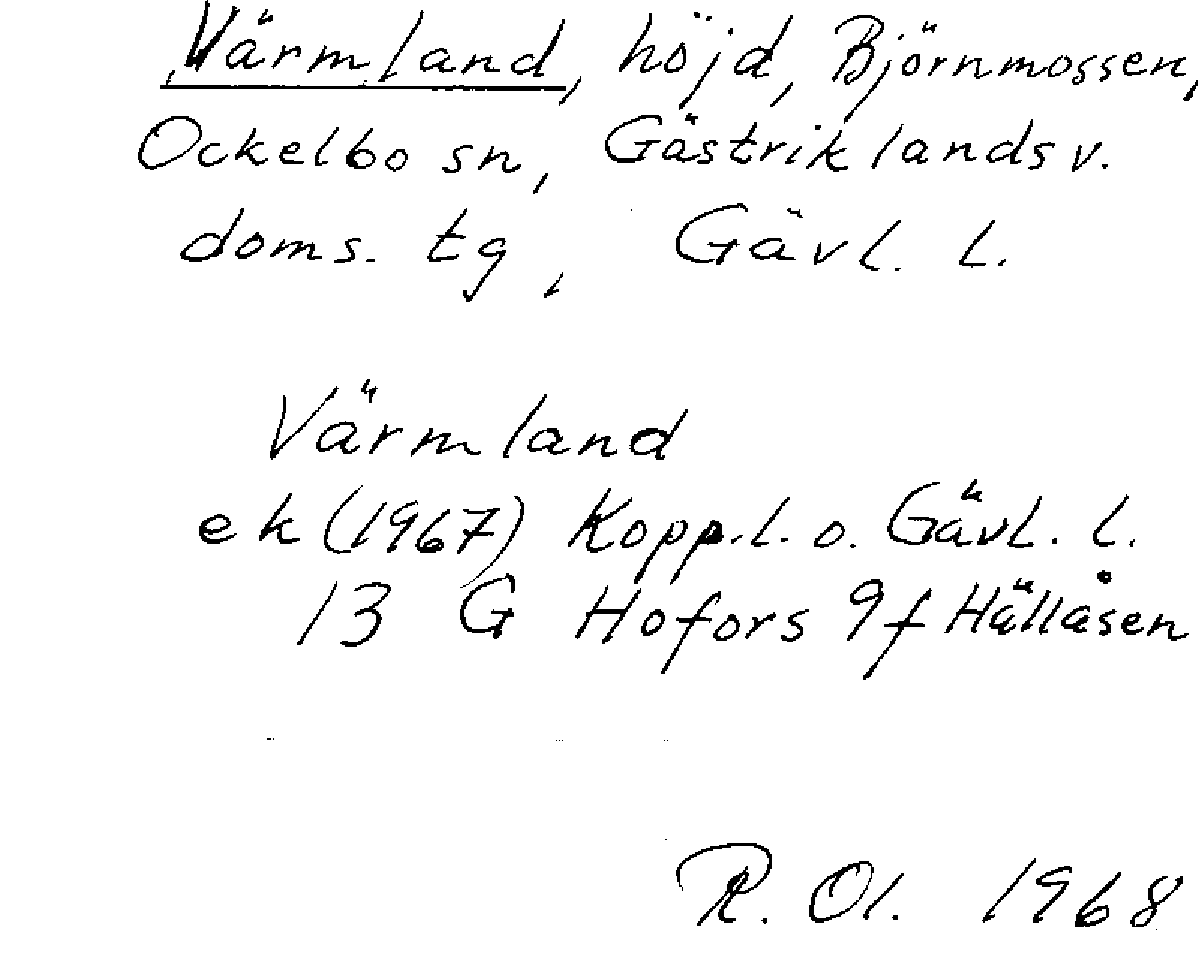 Värmland, höjd, Björnmossen,
Ockelbo sn, Gästriklands v.
doms. tg, Gävl. l.
Värmland
ek (1967) Kopp. l. o. Gävl. l.
13 G Hofors 9f Hällåsen
R. Ol. 1968